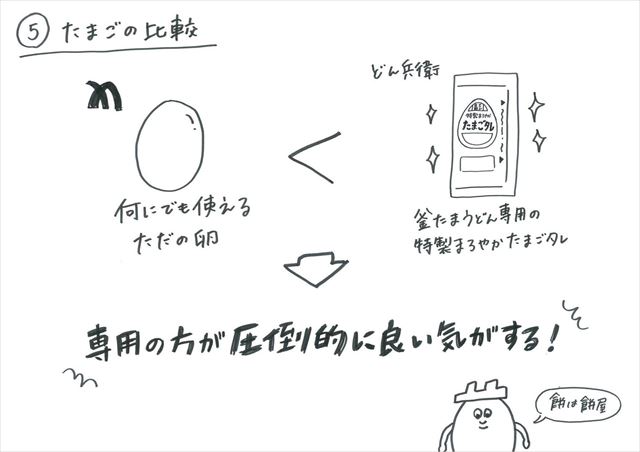 ⑤ たまごの比較
どん兵衛
特製まろやか
たまごダレ
<
何にでも使える
ただの卵
釜たまうどん専用の
特製まろやかたまごダレ
専用の方が圧倒的に良い気がする!
餅は餅屋